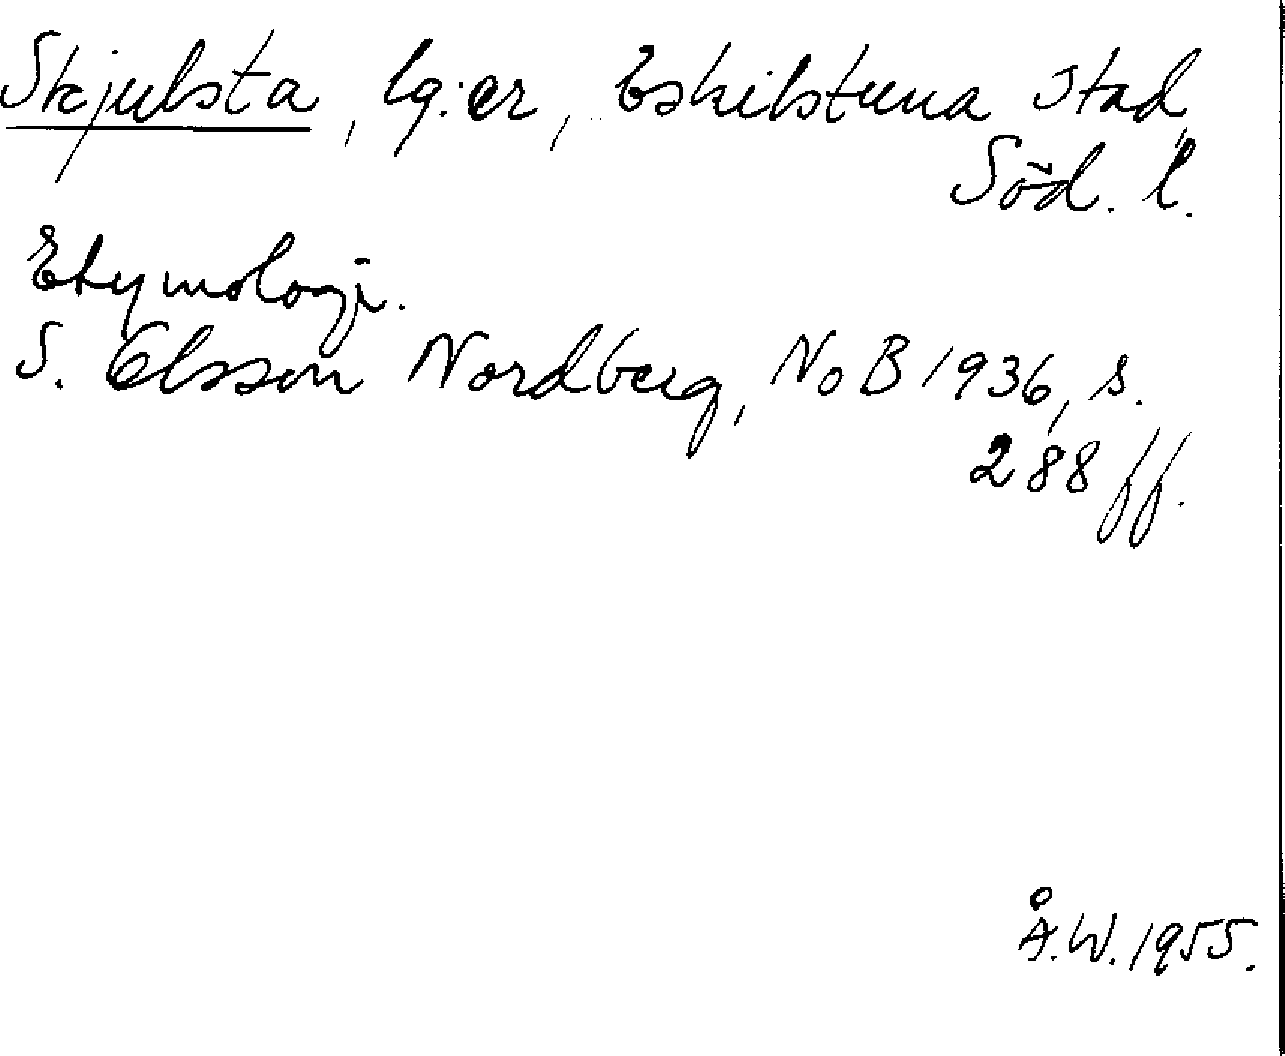 Skjulsta, lg:er, Eskilstuna stad,
Söd. l.
Etymologi.
S. Elsson Nordberg, NoB 1936, s.
288 ff.
Å.W. 1955.